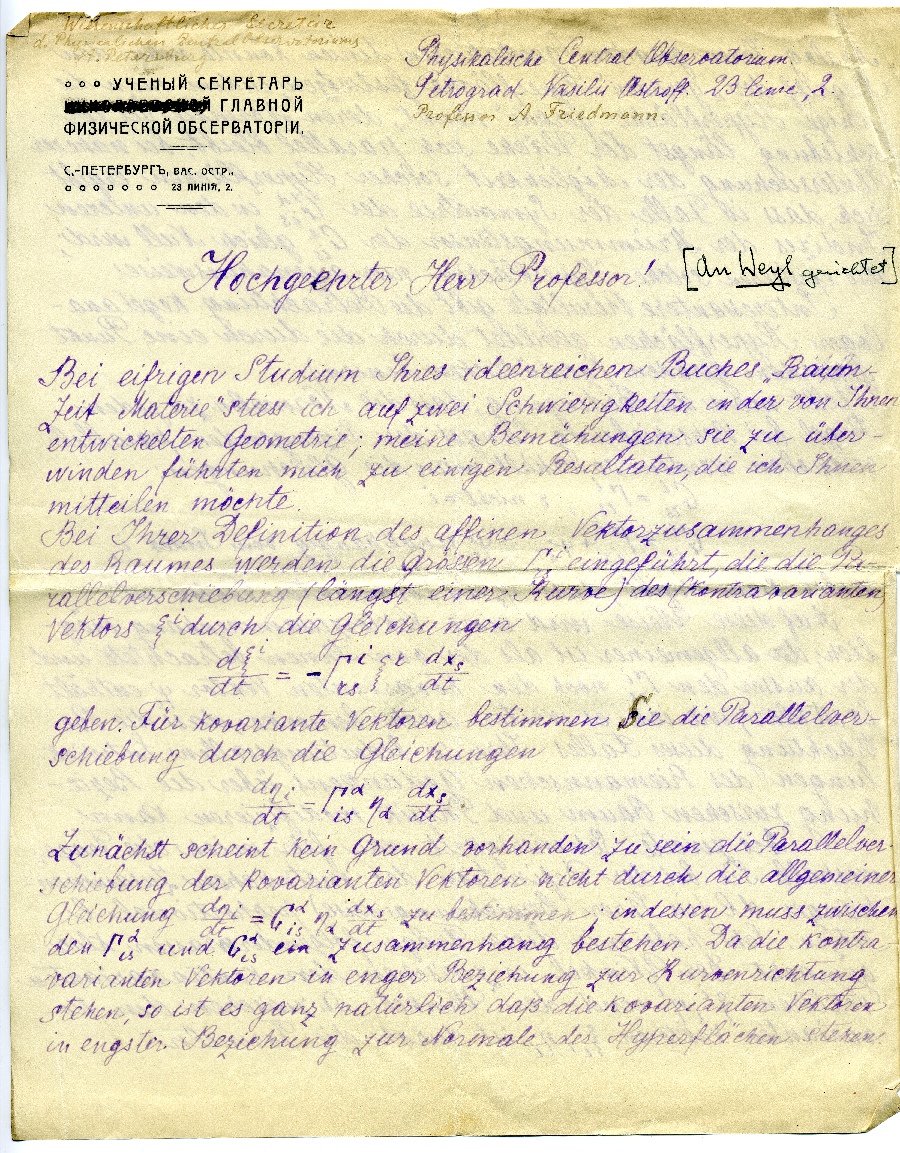 Wissenschaftlicher Secretär
d. Physicalischen Zentral Observatoriums
St. Petersburg
Physikalische Central Observatorium.
Petrograd. Vasilii Ostroff. 23 linie, 2.
Professor A. Friedmann.
УЧЕНЫЙ СЕКРЕТАРЬ
ГЛАВНОЙ
ФИЗИЧЕСКОЙ ОБСЕРВАТОРІИ.
С.-ПЕТЕРБУРГЪ, ВАС. ОСТР.,
23 ЛИНІЯ, 2.
Hochgeehrter Herr Professor!
[An Weyl gerichtet]
Bei eifrigen Studium Ihres ideenreichen Buches „Raum-
Zeit Materie" stiess ich auf zwei Schwierigkeiten in der von Ihnen
entwickelten Geometrie; meine Bemühungen sie zu über-
winden führten mich zu einigen Resultaten, die ich Ihnen
mitteilen möchte.
Bei Ihrer Definition des affinen Vektorzusammenhanges
des Raumes werden die Grössen Γ^i_{rs} eingeführt, die die Pa-
rallelverschiebung (längst einer Kurve) des (kontravarianten)
Vektors ξ^i durch die Gleichungen
dξ^i/dt = - Γ^i_{rs} ξ^r dx_s/dt
geben. Für kovariante Vektoren bestimmen Sie die Parallelver-
schiebung durch die Gleichungen
dη_i/dt = Γ^α_{is} η_α dx_s/dt.
Zunächst scheint kein Grund vorhanden zu sein die Parallelver-
schiebung der kovarianten Vektoren nicht durch die allgemeinen
Gleichung dη_i/dt = G^α_{is} η_α dx_s/dt zu bestimmen; indessen muss zwischen
den Γ^α_{is} und G^α_{is} ein Zusammenhang bestehen. Da die kontra-
varianten Vektoren in enger Beziehung zur Kurvenrichtung
stehen, so ist es ganz natürlich daß die kovarianten Vektoren
in engster Beziehung zur Normale des Hyperflächen stehen.